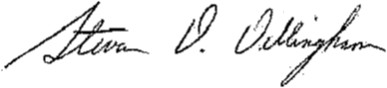 Steven D. Dillingham